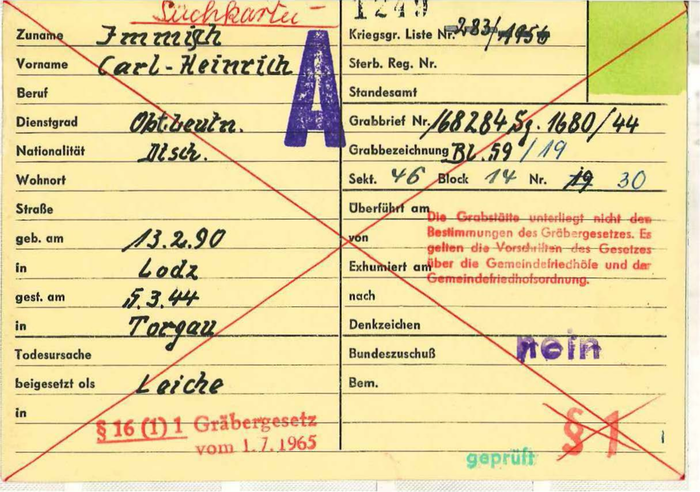 Suchkartei
1249
Zuname Immigh
Vorname Carl-Heinrich
Beruf
Dienstgrad Obtleutn.
Nationalität Dtsch.
Wohnort
Straße
geb. am 13.2.90
in Lodz
gest. am 5.3.44
in Torgau
Todesursache
beigesetzt als Leiche
in
§ 16 (1) 1 Gräbergesetz
vom 1.7.1965
A
Kriegsgr. Liste Nr. 283/1956
Sterb. Reg. Nr.
Standesamt
Grabbrief Nr. 168284 Sg. 1680/44
Grabbezeichnung Bl. 59 / 19
Sekt. 46 Block 14 Nr. 19 30
Überführt am
von
Exhumiert am
nach
Die Grabstätte unterliegt nicht den
Bestimmungen des Gräbergesetzes. Es
gelten die Vorschriften des Gesetzes
über die Gemeindefriedhöfe und der
Gemeindefriedhofsordnung.
Denkzeichen
Bundeszuschuß nein
Bem.
§ 1
geprüft